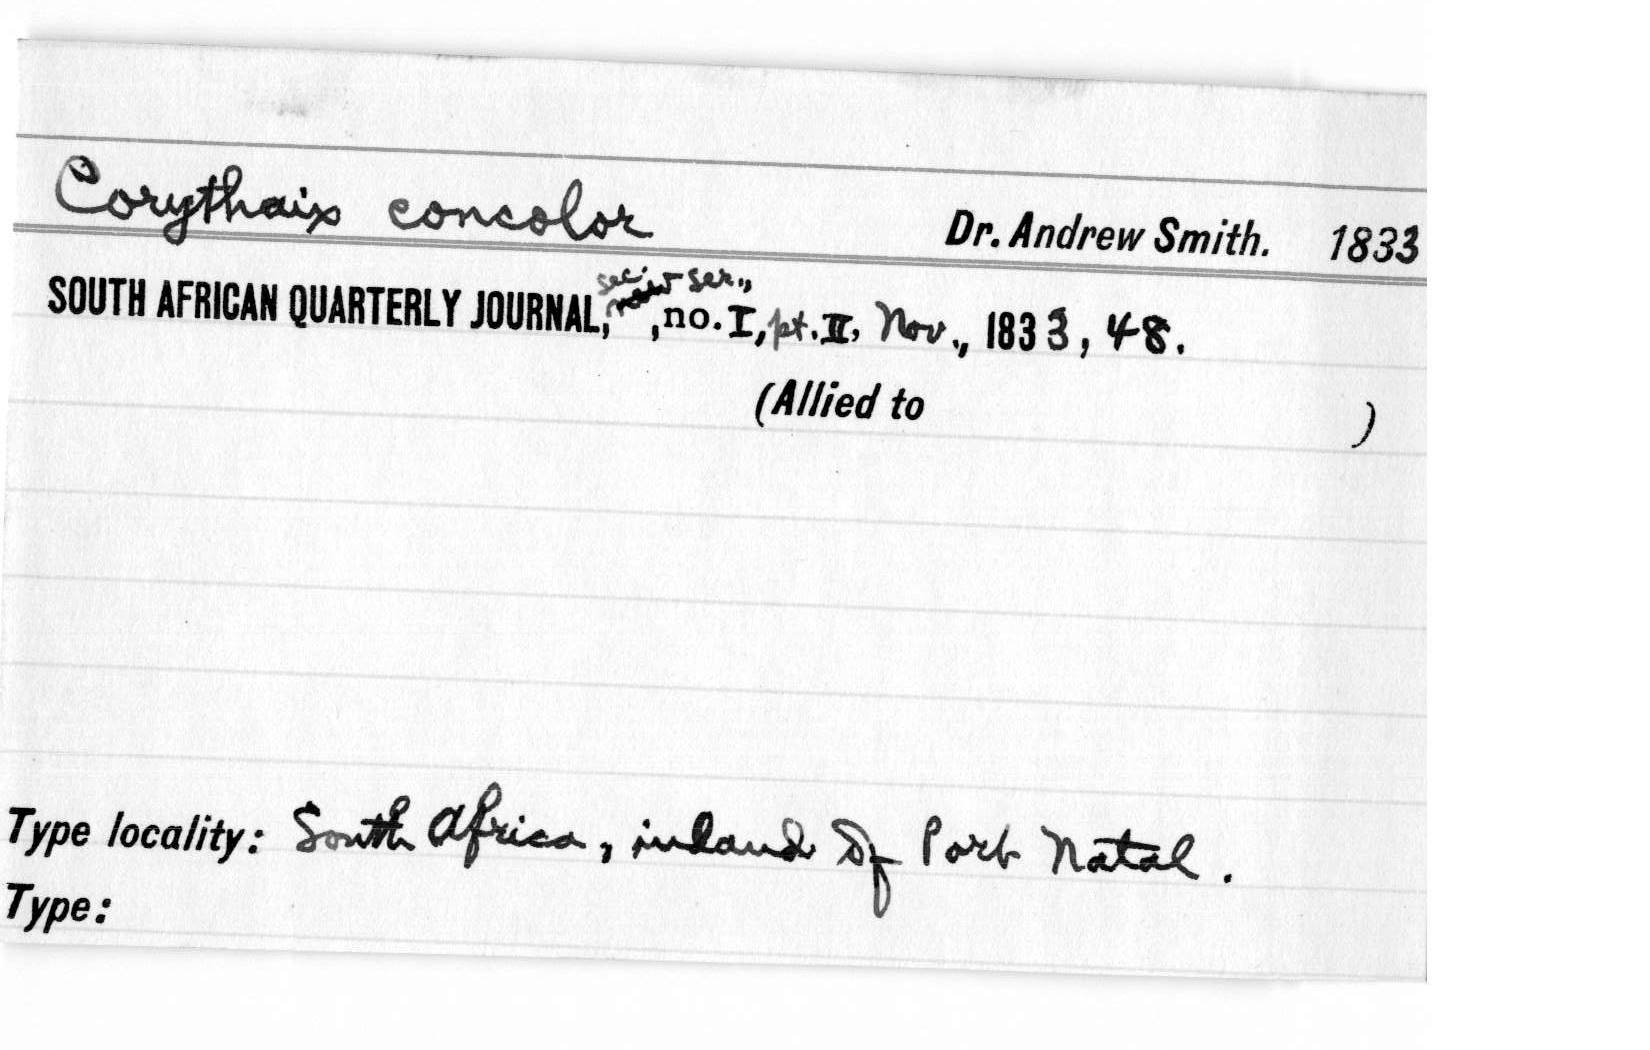 Corythaix concolor Dr. Andrew Smith. 1833
SOUTH AFRICAN QUARTERLY JOURNAL, sec. ser., no. I, pt. II, Nov., 1833, 48.
(Allied to )
Type locality: South Africa, inland of Port Natal.
Type: